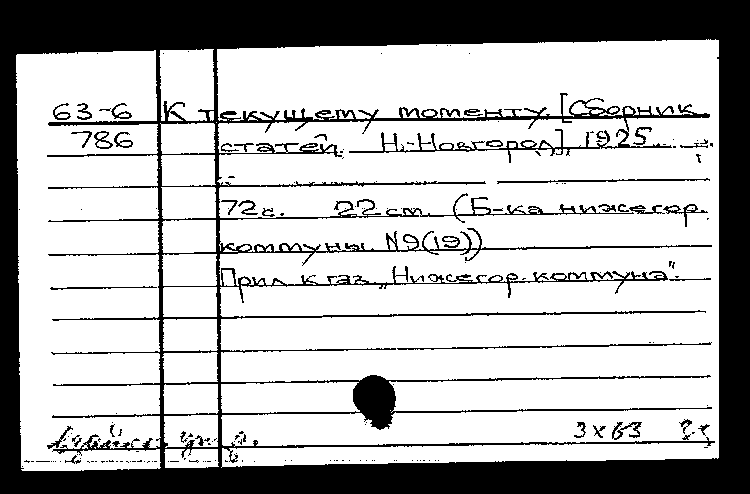 63-6 К текущему моменту. [Сборник
786 статей. Н.-Новгород], 1925.
72 с. 22 см. (Б-ка нижегор.
коммуны. №9(19))
Прил. к газ. „Нижегор. коммуна".
3х63